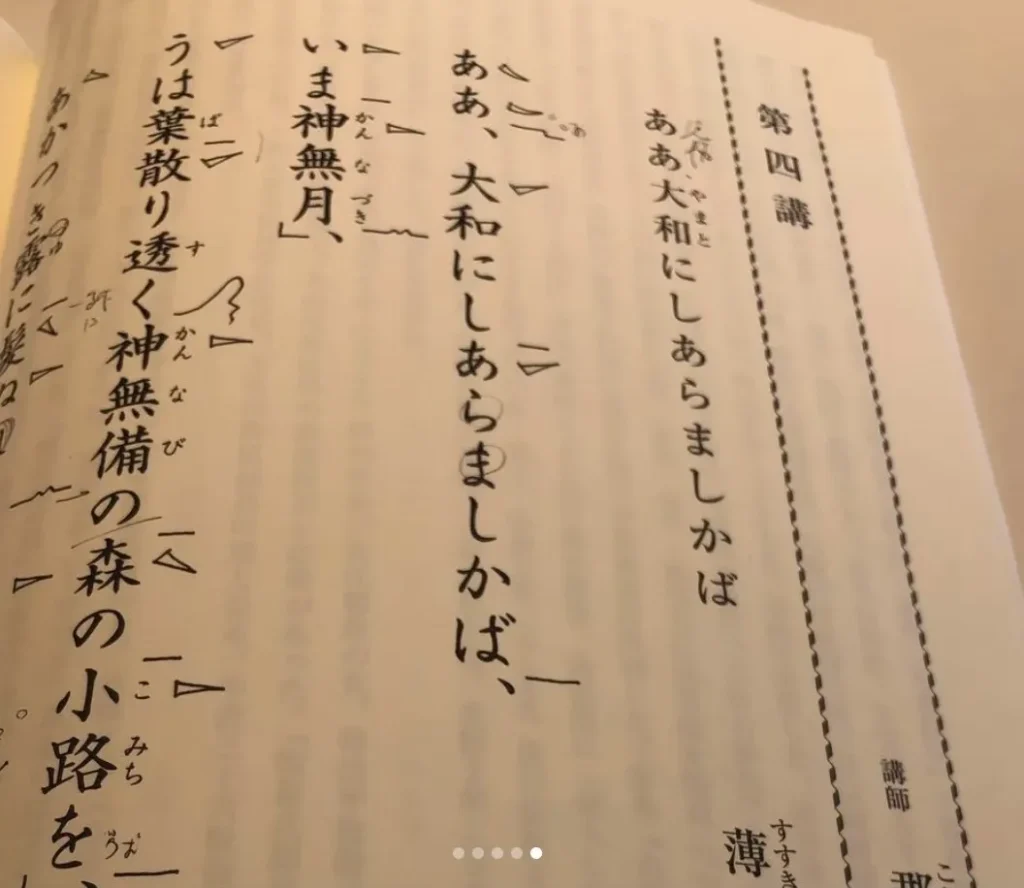 第四講
講師
ああ大和にしあらましかば
やまと
薄
すすき
ああ、大和にしあらましかば、
いま神無月、
かんなづき
うは葉散り透く神無備の森の小路を、
ば
す
かんなび
こみち
あかつき露に髪ぬ
つゆ